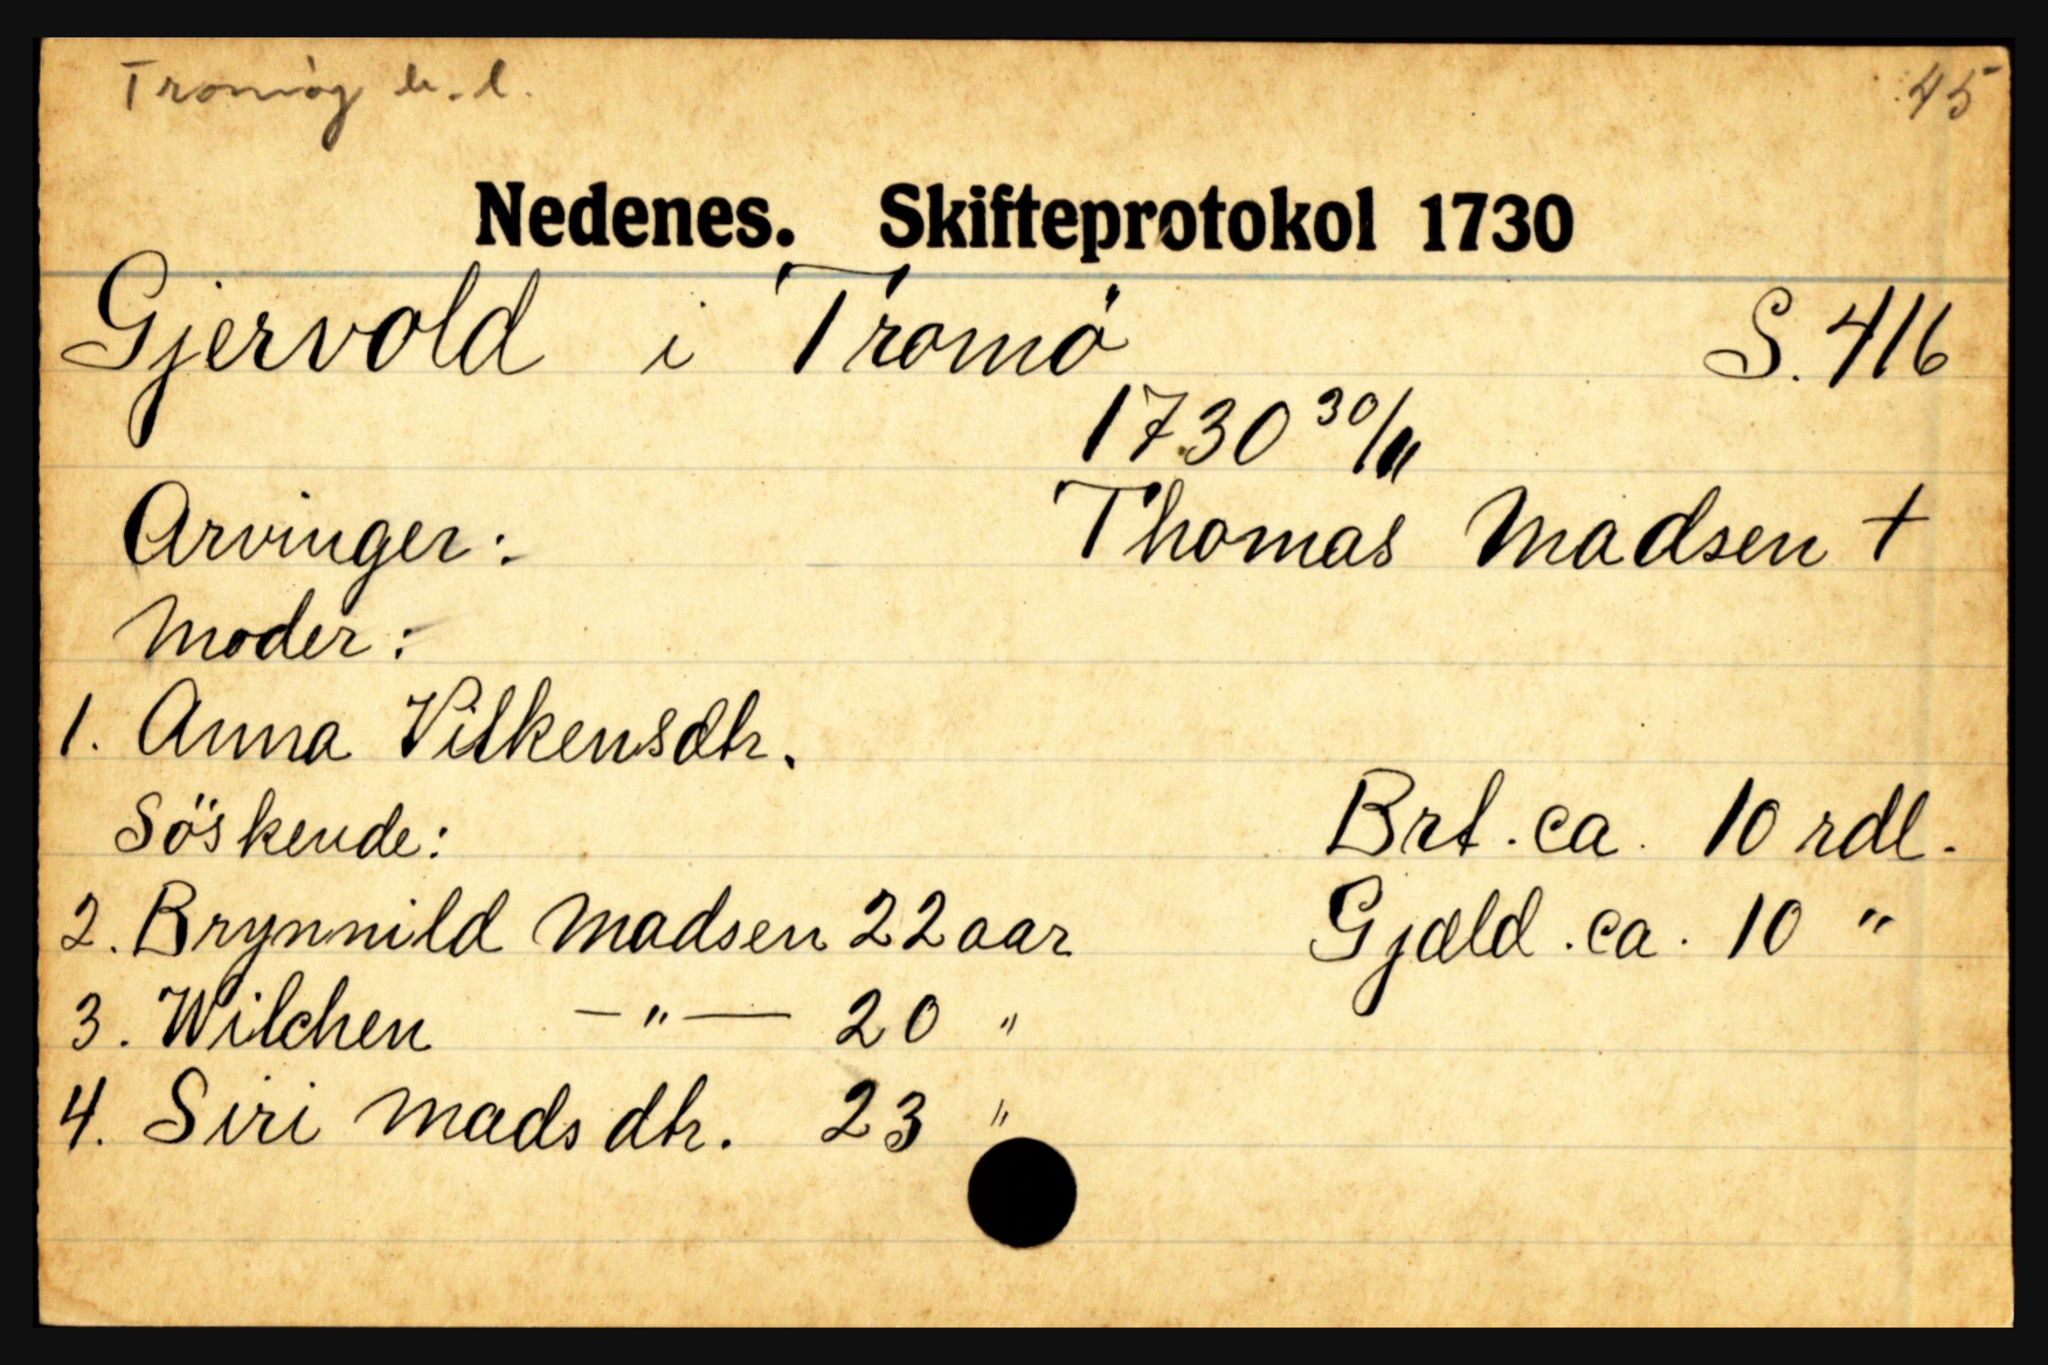 Tromøy h.l. 45
Nedenes. Skifteprotokol 1730
Gjervold i Tromø S. 416
1730 30/11
Arvinger: Thomas Madsen +
Moder:
1. Anna Vilkensdtr.
Söskende: Brt. ca. 10 rdl.
2. Brynnild Madsen 22 aar Gjæld. ca. 10 "
3. Wilchen —"— 20 "
4. Siri Madsdtr. 23 "